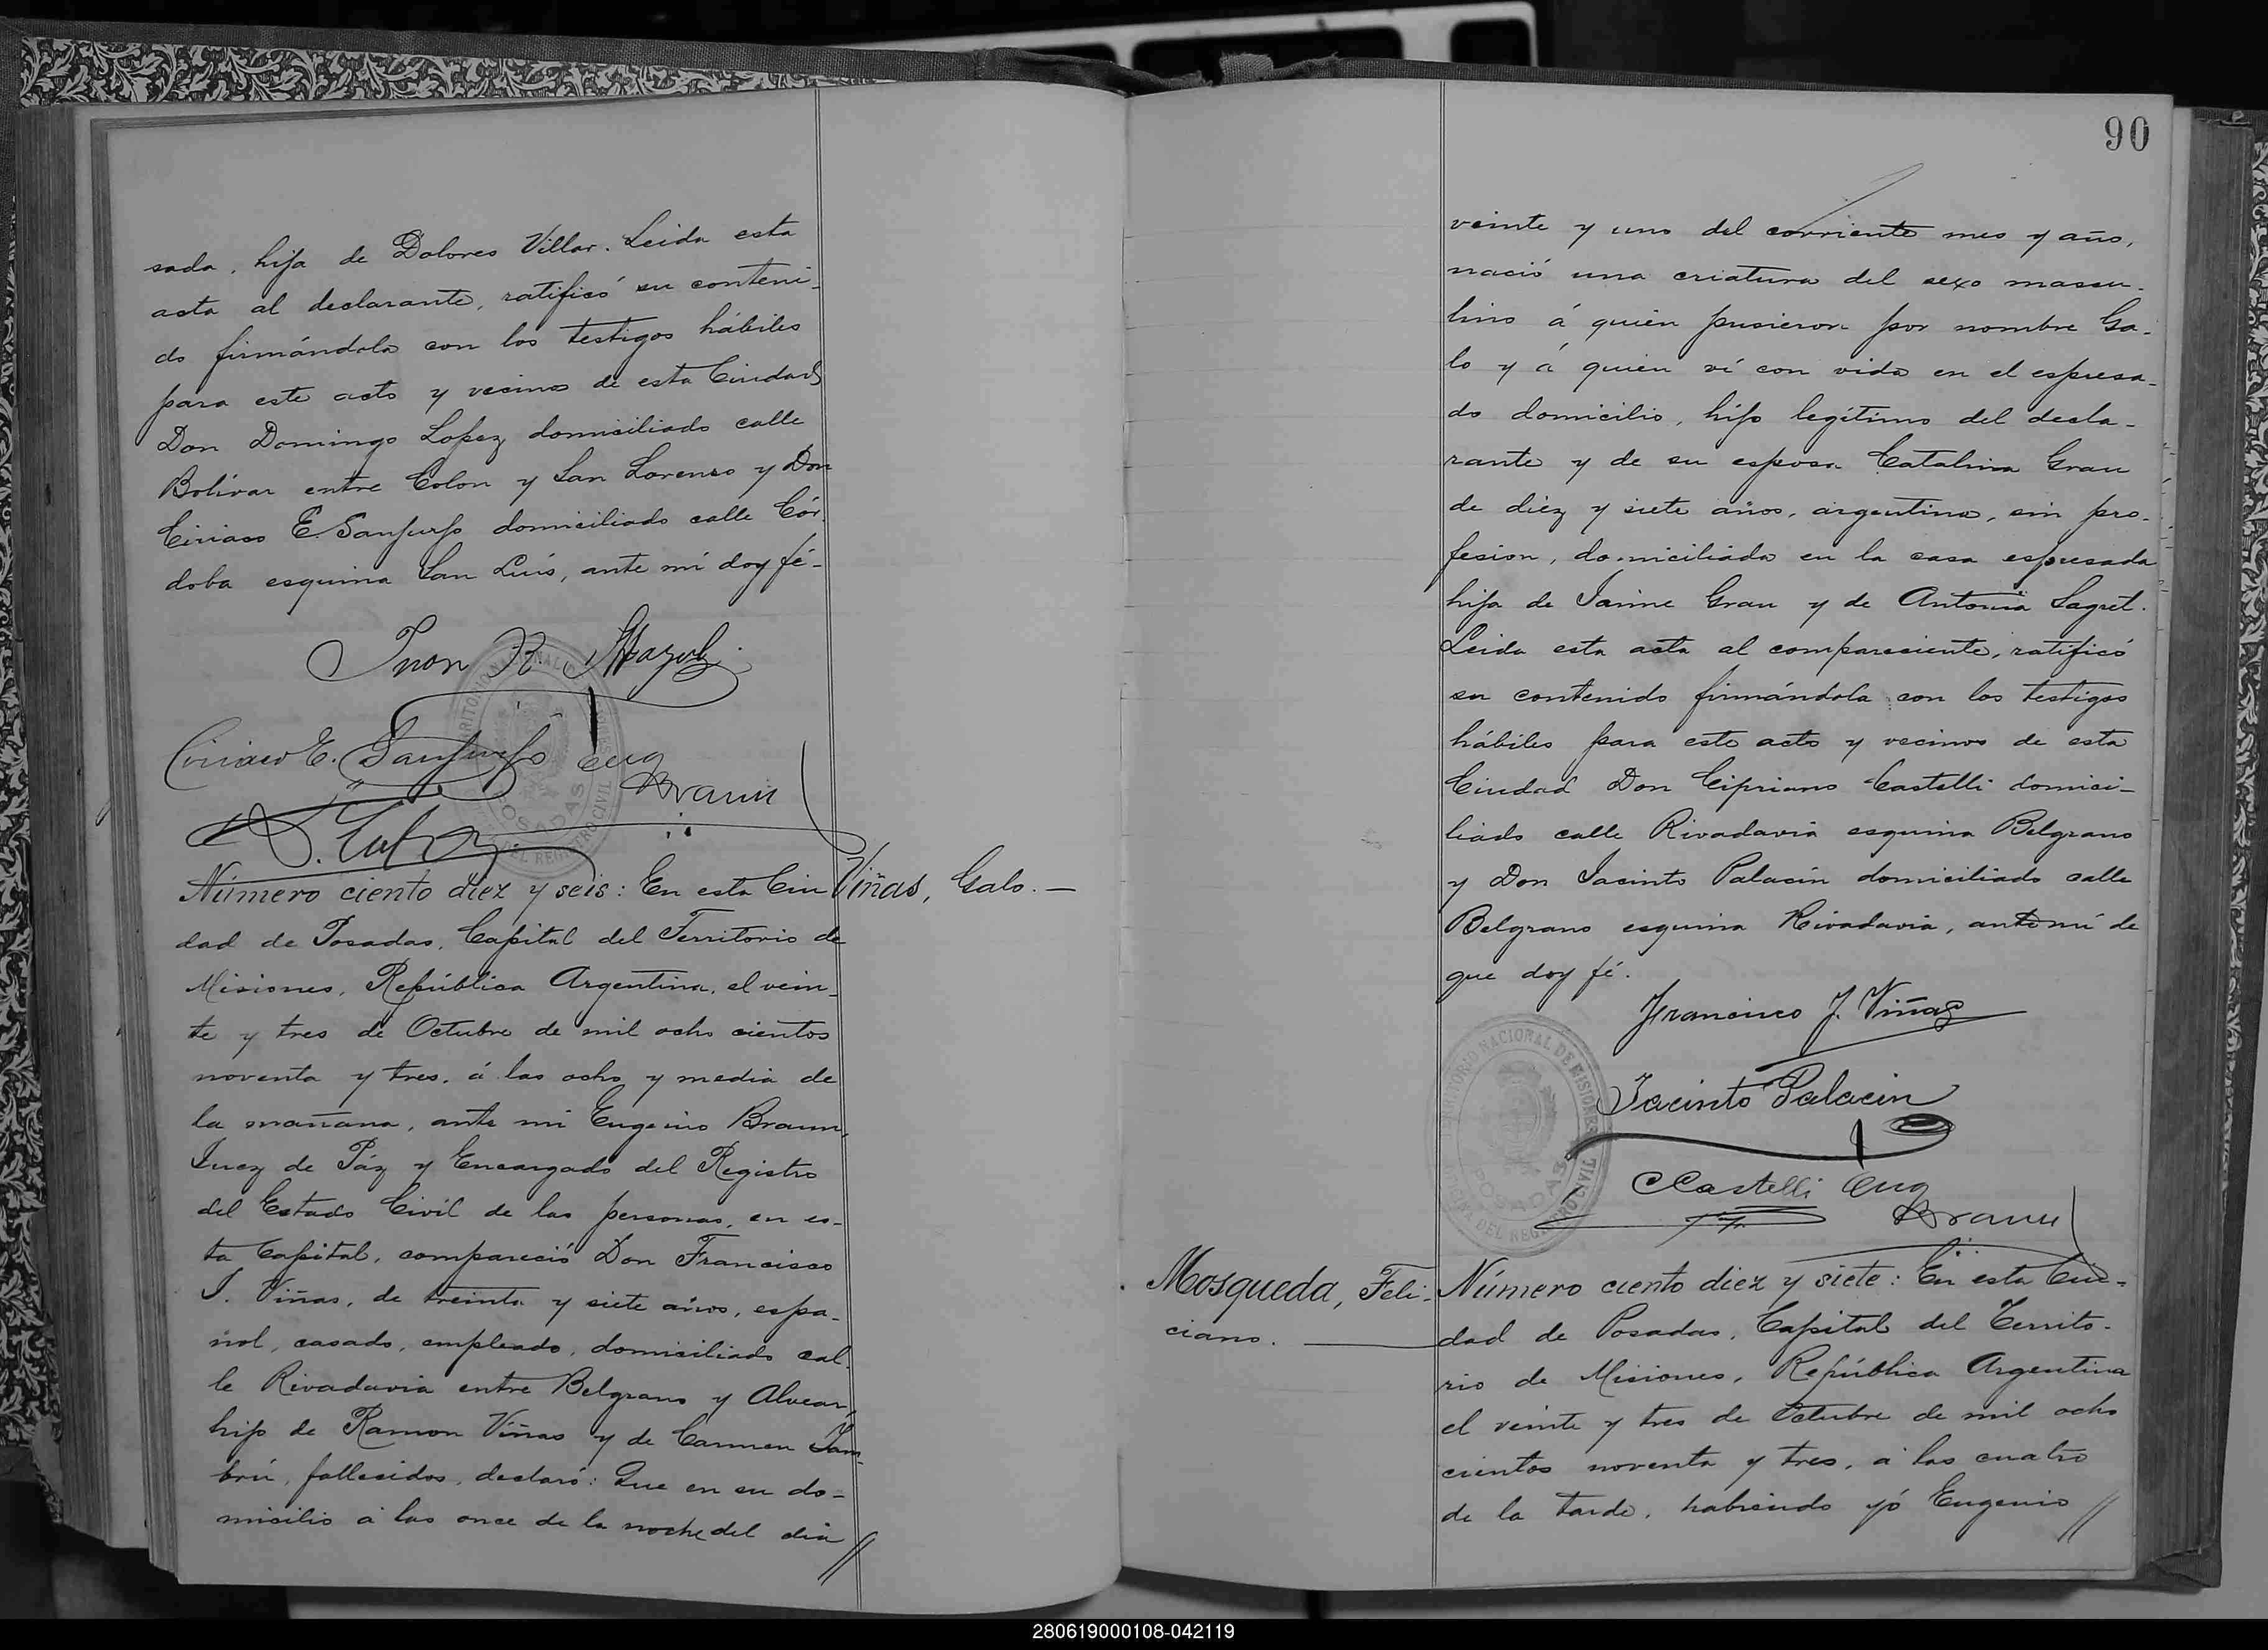 sada, hija de Dolores Villar. Leida esta
acta al declarante, ratificó su conteni-
do firmándola con los testigos hábiles
para este acto y vecinos de esta Ciudad
Don Domingo Lopez domiciliado calle
Bolívar entre Colon y San Lorenzo y Don
Ciriaco E. Sanjurjo domiciliado calle Cór-
doba esquina San Luis, ante mí doy fé-
Juan R.
Ciriaco E. Sanjurjo Eug
Braun
Número ciento diez y seis: En esta Ciu
Viñas, Galo.—
dad de Posadas, Capital del Territorio de
Misiones, República Argentina, el vein-
te y tres de Octubre de mil ocho cientos
noventa y tres, á las ocho y media de
la mañana, ante mi Eugenio Braun,
Juez de Páz y Encargado del Registro
del Estado Civil de las personas, en es-
ta Capital, compareció Don Francisco
J. Viñas, de treinta y siete años, espa-
ñol, casado, empleado, domiciliado cal-
le Rivadavia entre Belgrano y Alvear,
hijo de Ramon Viñas y de Carmen Jam-
brú, fallecidos, declaró: Que en su do-
micilio á las once de la noche del dia //
90
veinte y uno del corriente mes y año,
nació una criatura del sexo mascu-
lino á quien pusieron por nombre Ga-
lo y á quien ví con vida en el espresa-
do domicilio, hijo legítimo del decla-
rante y de su esposa Catalina Grau
de diez y siete años, argentina, sin pro-
fesion, domiciliada en la casa espresada
hija de Jaime Grau y de Antonia Sagret.
Leida esta acta al compareciente, ratificó
su contenido firmándola con los testigos
hábiles para este acto y vecinos de esta
Ciudad Don Cipriano Castelli domici-
liado calle Rivadavia esquina Belgrano
y Don Jacinto Palacin domiciliado calle
Belgrano esquina Rivadavia, ante mí de
que doy fé.
Francisco J. Viñas
TERRITORIO NACIONAL DE MISIONES
POSADAS
OFICINA DEL REGISTRO CIVIL
Jacinto Palacin
CCastelli Eug
Braun
Mosqueda, Feli-
ciano.
Número ciento diez y siete: En esta Ciu-
dad de Posadas, Capital del Territo-
rio de Misiones, República Argentina
el veinte y tres de Octubre de mil ocho
cientos noventa y tres, á las cuatro
de la tarde, habiendo yó Eugenio //
280619000108-042119